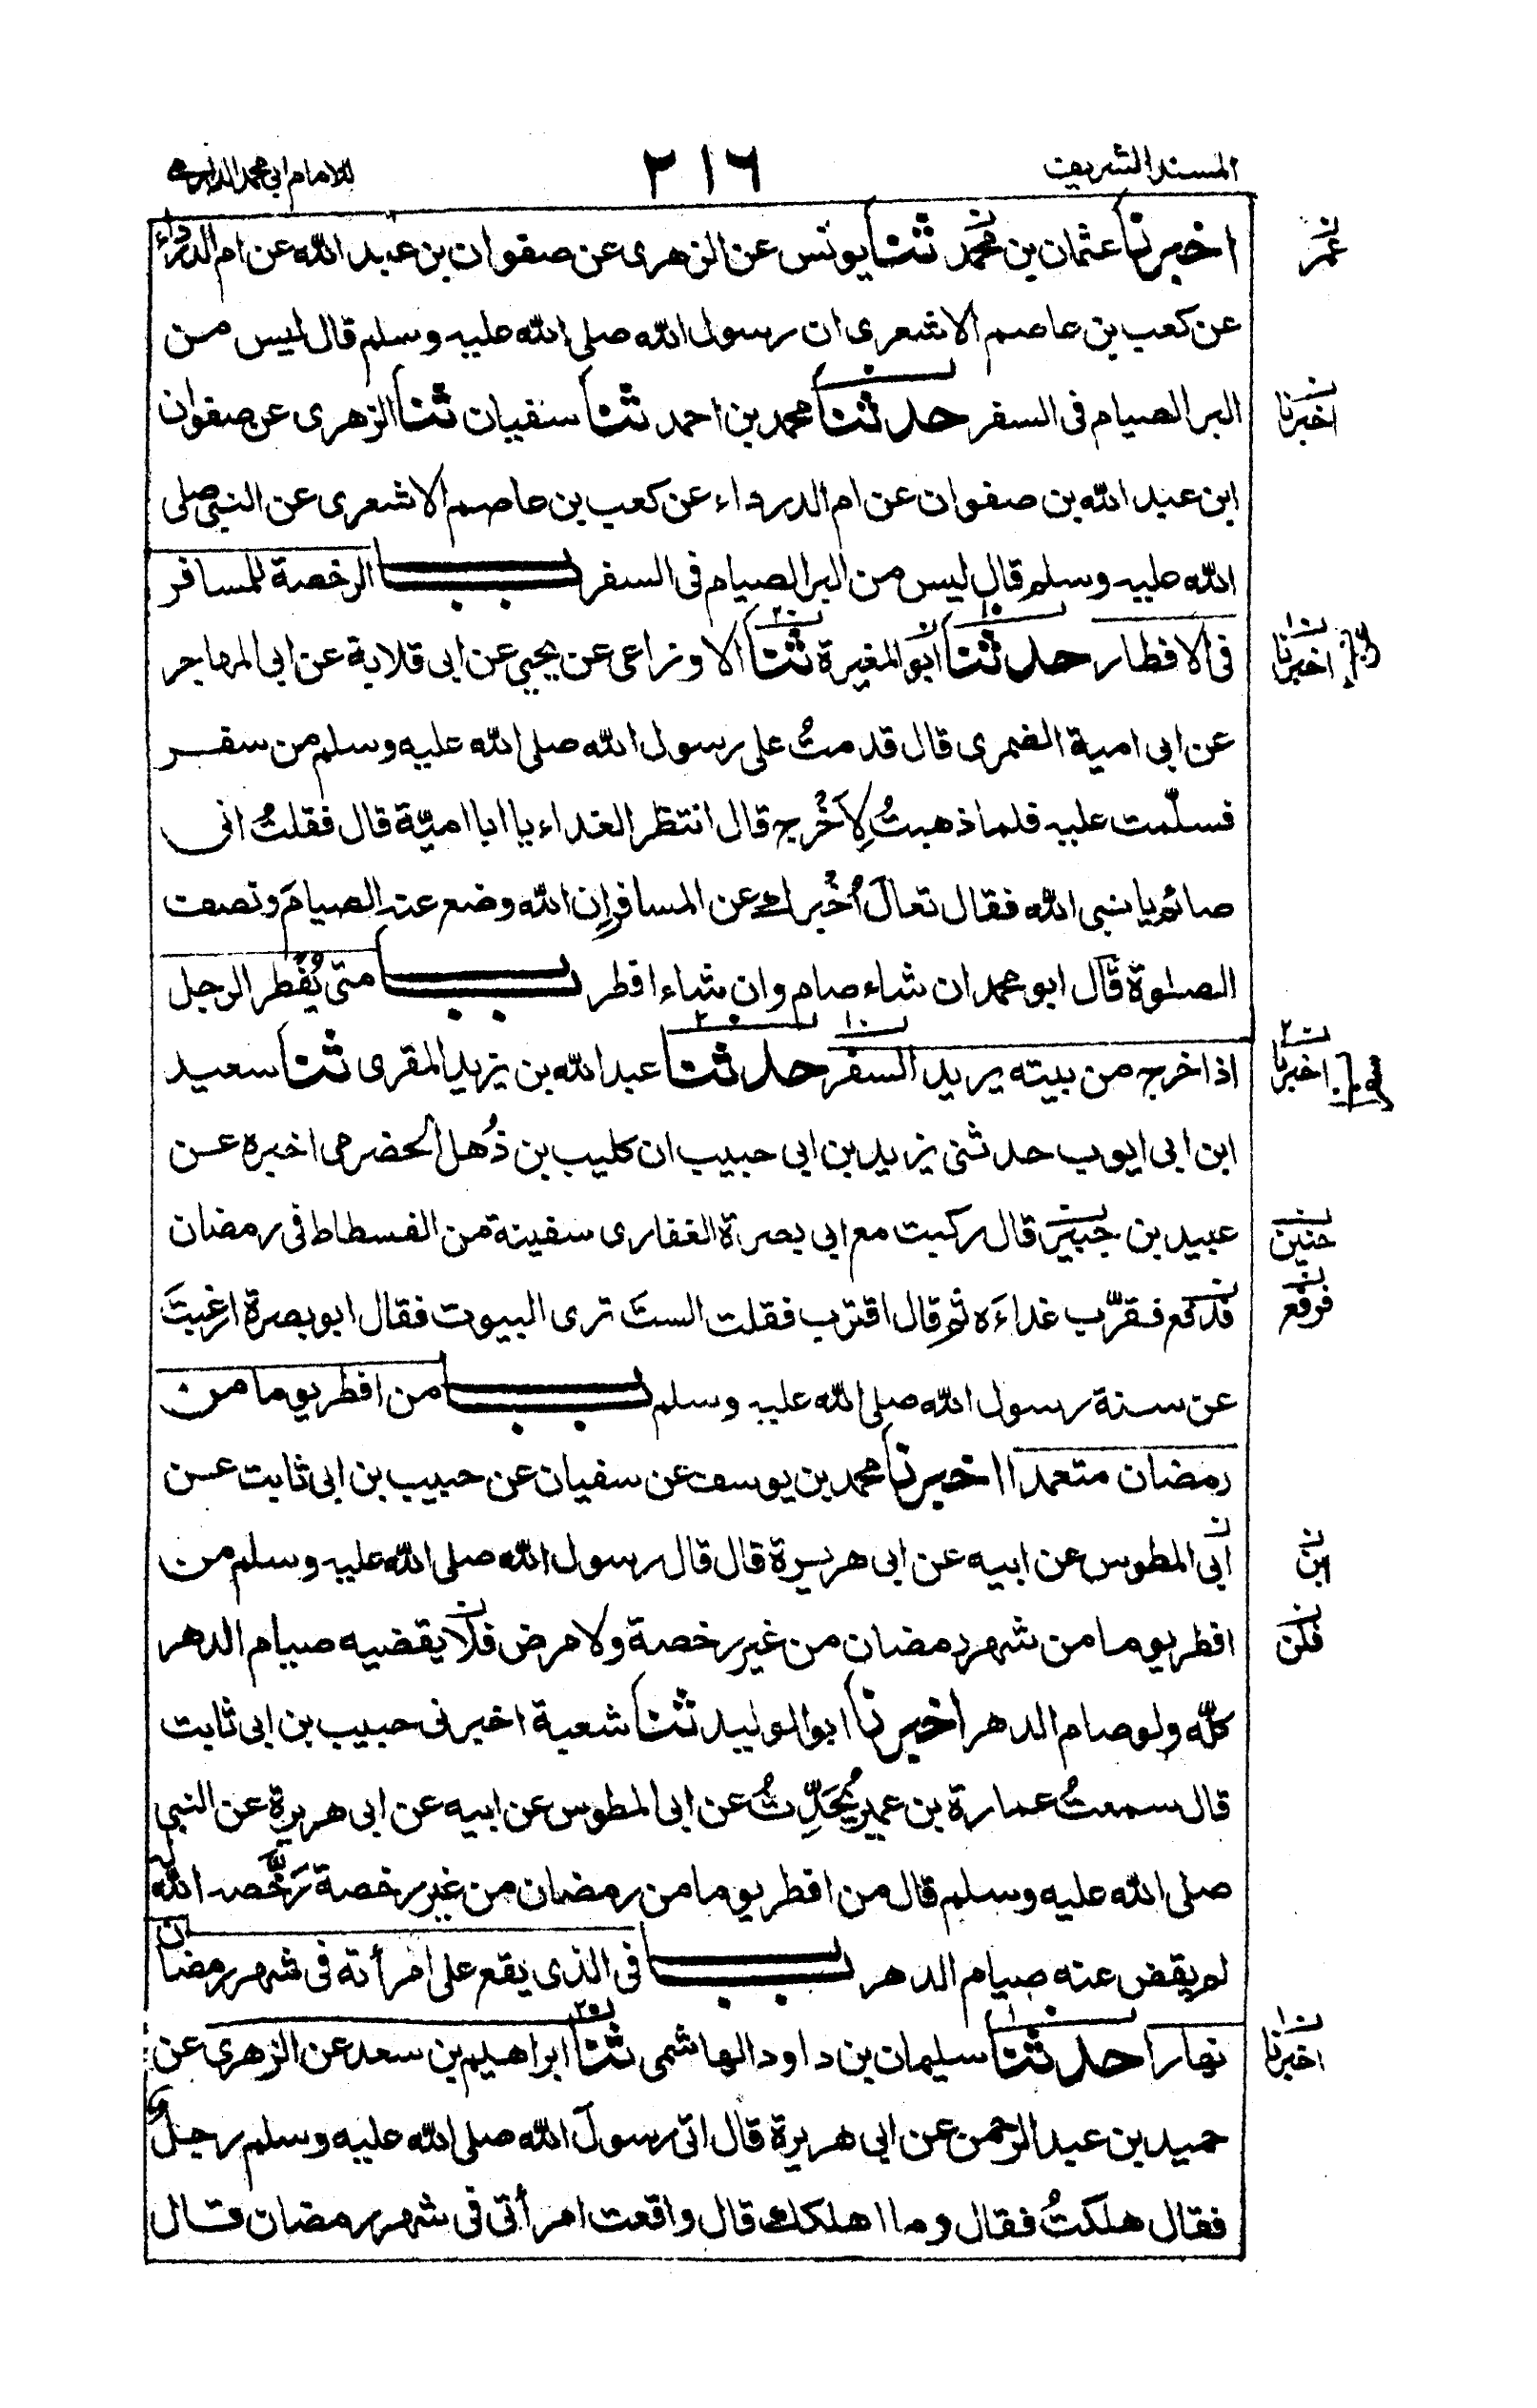 المسند الشريف ٢١٦ للامام ابى محمد الدارمى
اخبرنا عثمان بن محمد ثنا يونس عن الزهرى عن صفوان بن عبد الله عن ام الدرداء
عمر
عن كعب بن عاصم الاشعرى ان رسول الله صلى الله عليه وسلم قال ليس من
البر الصيام فى السفر حدثنا محمد بن احمد ثنا سفيان ثنا الزهرى عن صفوان
اخبرنا
ابن عبد الله بن صفوان عن ام الدرداء عن كعب بن عاصم الاشعرى عن النبى صلى
الله عليه وسلم قال ليس من البر الصيام فى السفر باب الرخصة للمسافر
فى الافطار حدثنا ابو المغيرة ثنا الاوزاعى عن يحيى عن ابى قلابة عن ابى المهاجر
اخبرنا
عن ابى امية الضمرى قال قدمتُ على رسول الله صلى الله عليه وسلم من سفر
فسلّمت عليه فلما ذهبتُ لِاَخْرج قال انتظر الغداء يا ابا اميّة قال فقلتُ انى
صائم يا نبى الله فقال تعالَ اُخْبرك عن المسافر اِن الله وضع عنه الصيامَ ونصف
الصلوة قال ابو محمد ان شاء صام وان شاء افطر باب متى يُفْطر الرجل
اذا خرج من بيته يريد السفر حدثنا عبد الله بن يزيد المقرى ثنا سعيد
اخبرنا
ابن ابى ايوب حدثنى يزيد بن ابى حبيب ان كليب بن ذُهل الحضرمى اخبره عن
عبيد بن جبير قال ركبت مع ابى بصرة الغفارى سفينة من الفسطاط فى رمضان
حنين
فدفع فقرّب غداءَه ثم قال اقترب فقلت الستَ ترى البيوت فقال ابو بصرة ارغبتَ
فرفع
عن سنة رسول الله صلى الله عليه وسلم باب من افطر يوما من
رمضان متعمدا اخبرنا محمد بن يوسف عن سفيان عن حبيب بن ابى ثابت عن
ابى المطوس عن ابيه عن ابى هريرة قال قال رسول الله صلى الله عليه وسلم من
ابن
افطر يوما من شهر رمضان من غير رخصة ولا مرض فلا يقضيه صيام الدهر
فلن
كلّه ولو صام الدهر اخبرنا ابو الوليد ثنا شعبة اخبرنى حبيب بن ابى ثابت
قال سمعتُ عمارة بن عمير يُحَدِّثُ عن ابى المطوس عن ابيه عن ابى هريرة عن النبى
صلى الله عليه وسلم قال من افطر يوما من رمضان من غير رخصة رَخَّصه الله له
لم يقض عنه صيام الدهر باب فى الذى يقع على امرأته فى شهر رمضان
نهارا حدثنا سليمان بن داود الهاشمى ثنا ابراهيم بن سعد عن الزهرى عن
اخبرنا
حميد بن عبد الرحمن عن ابى هريرة قال اتى رسولَ الله صلى الله عليه وسلم رجلٌ
فقال هلكتُ فقال وما اهلكك قال واقعت امرأتى فى شهر رمضان قال